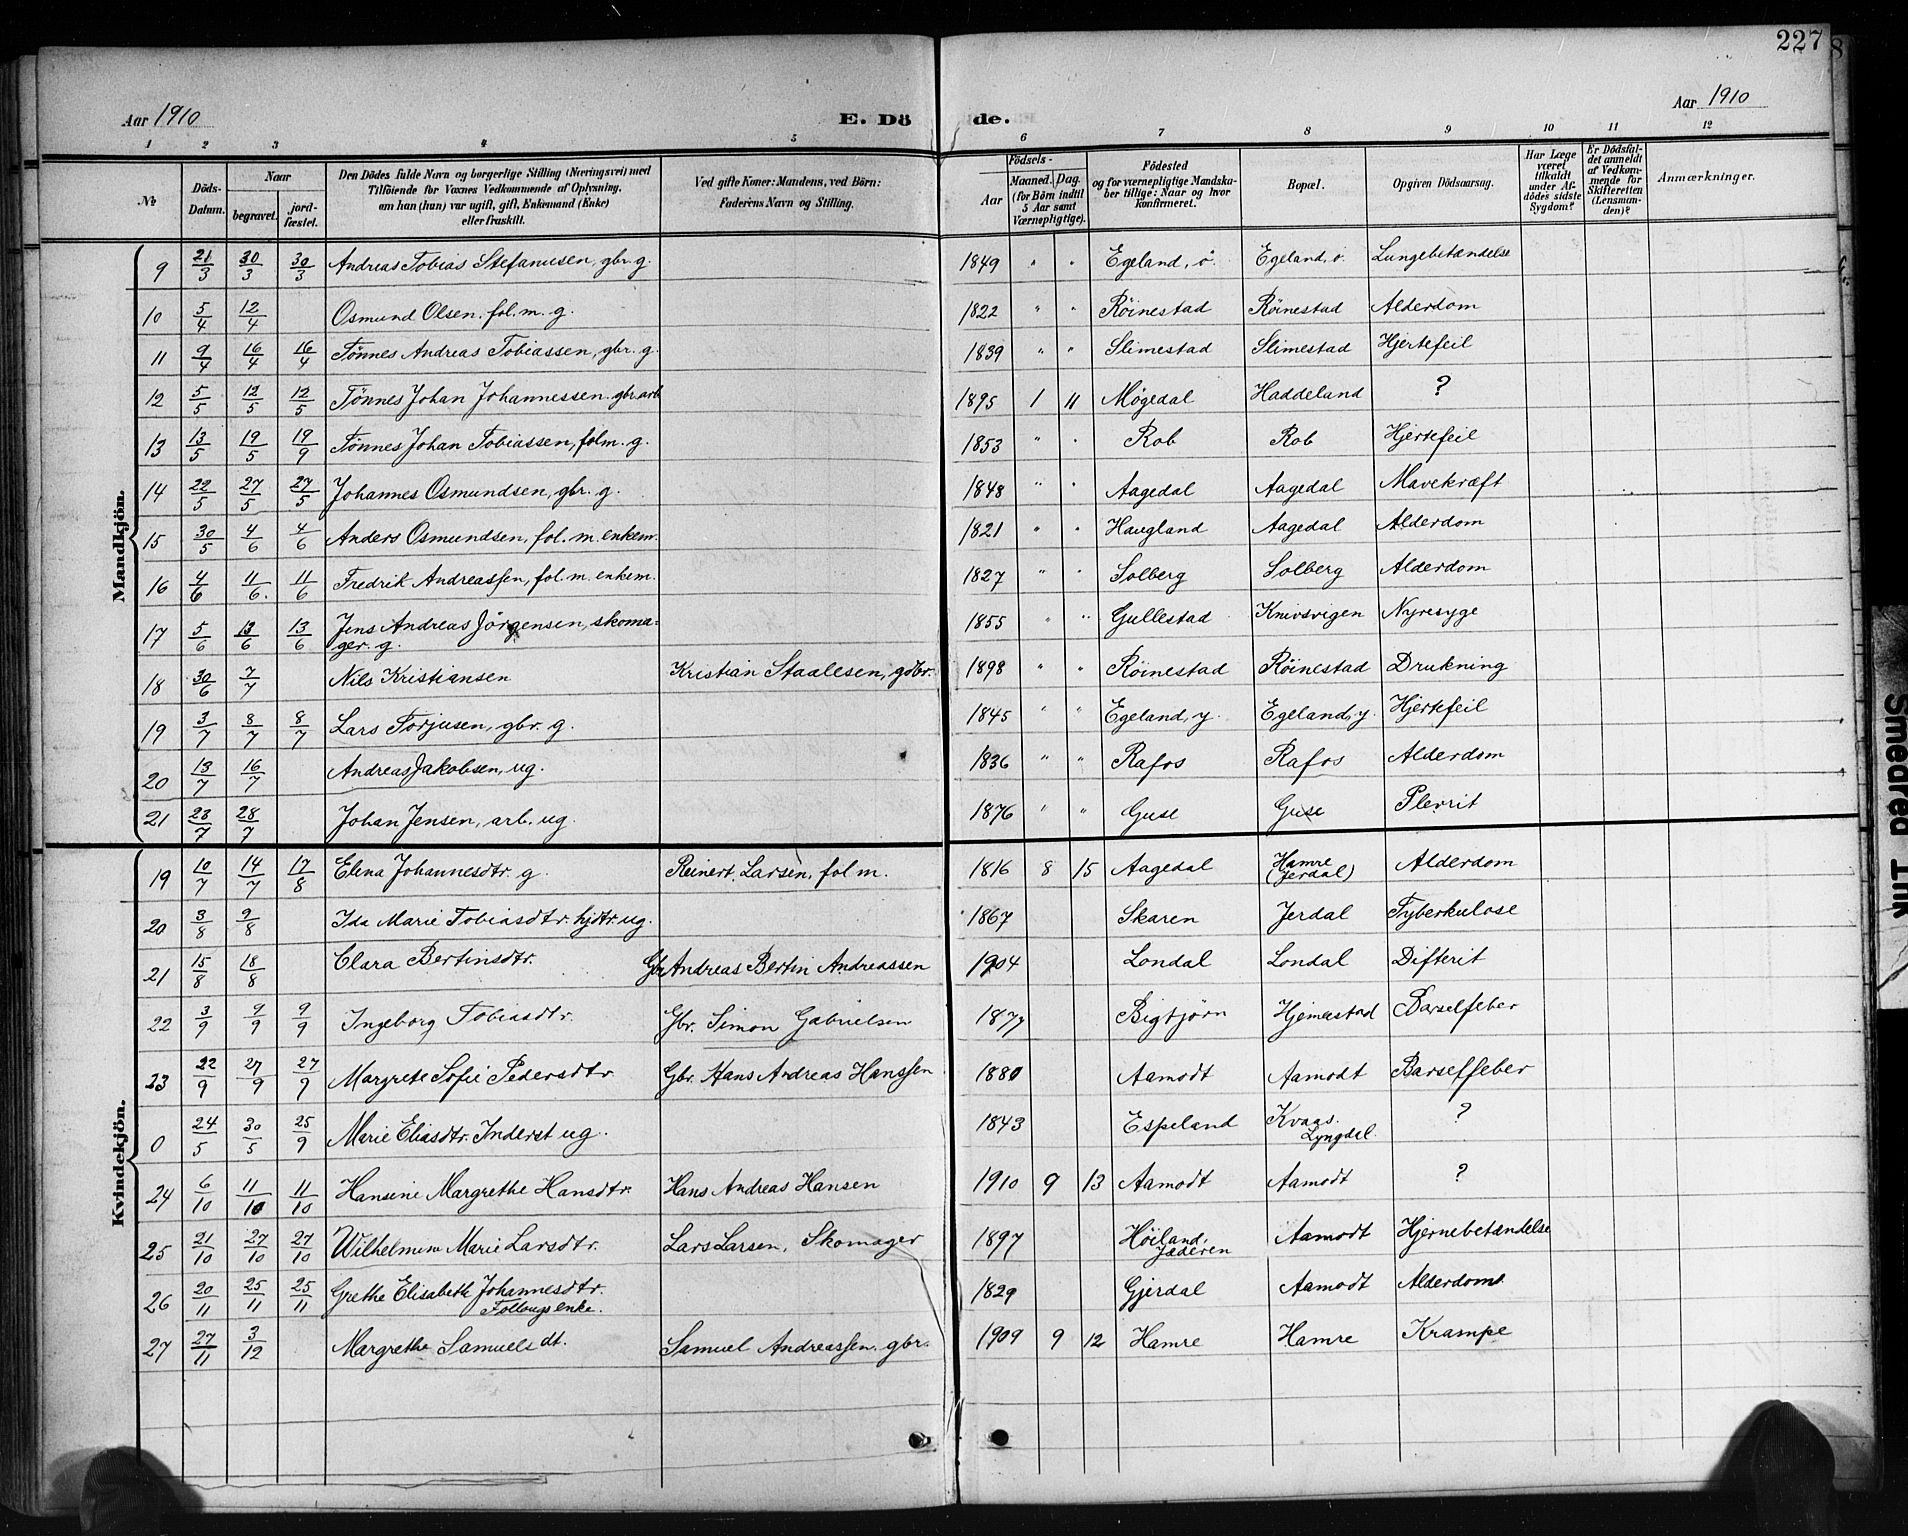 227
8
Aar 1910
E. Dö de.
Aar 1910
1 2 3 4 5 6 7 8 9 10 11 12
№
Döds-Datum.
Naar
begravet.
jord-fæstet.
Den Dödes fulde Navn og borgerlige Stilling (Næringsvei) med
Tilföiende for Voxnes Vedkommende af Oplysning,
om han (hun) var ugift, gift, Enkemand (Enke)
eller fraskilt.
Ved gifte Koner: Mandens, ved Börn:
Faderens Navn og Stilling.
Födsels-
Aar
Maaned. Dag.
(for Börn indtil
5 Aar samt
Værnepligtige).
Födested
og for værnepligtige Mandska-
ber tillige: Naar og hvor
konfirmeret.
Bopæl.
Opgiven Dödsaarsag.
Har Læge
været
tilkaldt
under Af-
dödes sidste
Sygdom?
Er Dödsfal-
det anmeldt
af Vedkom-
mende for
Skifteretten
(Lensman-
den)?
Anmærkninger.
Mandkjön.
9 21/3 30/3 30/3 Andreas Tobias Stefanusen, gbr. g. 1849 " " Egeland, ö. Egeland, ö. Lungebetændelse
10 5/4 12/4 Osmund Olsen. fol. m. g. 1822 " " Röinestad Röinestad Alderdom
11 9/4 16/4 16/4 Tönnes Andreas Tobiassen, gbr. g. 1839 " " Slimestad Slimestad Hjertefeil
12 5/5 12/5 12/5 Tönnes Johan Johannessen gbr. arb 1895 1 11 Mögedal Haddeland ?
13 13/5 19/5 19/9 Tönnes Johan Tobiassen, folm. g. 1853 " " Rob Rob Hjertefeil
14 22/5 27/5 27/5 Johannes Osmundsen, gbr. g. 1848 " " Aagedal Aagedal Mavekræft
15 30/5 4/6 4/6 Anders Osmundsen, fol. m. enkem. 1821 " " Haugland Aagedal Alderdom
16 4/6 11/6. 11/6 Fredrik Andreassen, fol. m. enkem. 1827 " " Solberg Solberg Alderdom
17 5/6 13/6 13/6 Jens Andreas Jörgensen, skoma= 1855 " " Gullestad Knivsvigen Nyresyge
ger. g.
18 30/6 7/7 Nils Kristiansen Kristian Staalesen, gdbr. 1898 " " Röinestad Röinestad Drukning
19 3/7 8/7 8/7 Lars Torjusen, gbr. g. 1845 " " Egeland, y. Egeland, y. Hjertefeil
20 13/7 16/7 Andreas Jakobsen, ug. 1836 " " Rafos Rafos Alderdom
21 23/7 28/7 Johan Jensen, arb. ug. 1876 " " Guse Guse Plevrit
Kvindekjön.
19 10/7 14/7 17/8 Elena Johannesdtr. g. Reinert Larsen, fol m. 1816 8 15 Aagedal Hamre Alderdom
(Jerdal)
20 3/8 9/8 Ida Marie Tobiasdtr. hjdtr. ug. 1867 Skaren Jerdal Tyberkulose
21 15/8 18/8 Clara Bertinsdtr. Gbr Andreas Bertin Andreassen 1904 Londal Londal Difterit
22 3/9 9/9 9/9 Ingeborg Tobiasdtr. Gbr. Simon Gabrielsen 1877 Bigtjörn Hjemestad Barselfeber
23 22/9 27/9 27/9 Margrete Sofie Pedersdtr Gbr. Hans Andreas Hanssen 1880 Aamodt Aamodt Barselfeber
0 24/5 30/5 25/9 Marie Eliasdtr. Inderst ug. 1843 Espeland Kvaas. ?
Lyngdal.
24 6/10 11/10 11/10 Hansine Margrethe Hansdtr. Hans Andreas Hansen 1910 9 13 Aamodt Aamodt ?
25 21/10 27/10 27/10 Wilhelmine Marie Larsdtr. Lars Larsen, Skomager 1897 Höiland, Aamodt Hjernebetændelse
Jæderen
26 20/11 25/11 25/11 Grethe Elisabeth Johannesdtr. 1829 Gjerdal Aamodt Alderdoms
enke.
27 27/11 3/12 Margrethe Samuels dt. Samuel Andreassen, gbr. 1909 9 12 Hamre Hamre Krampe
Smeared Ink